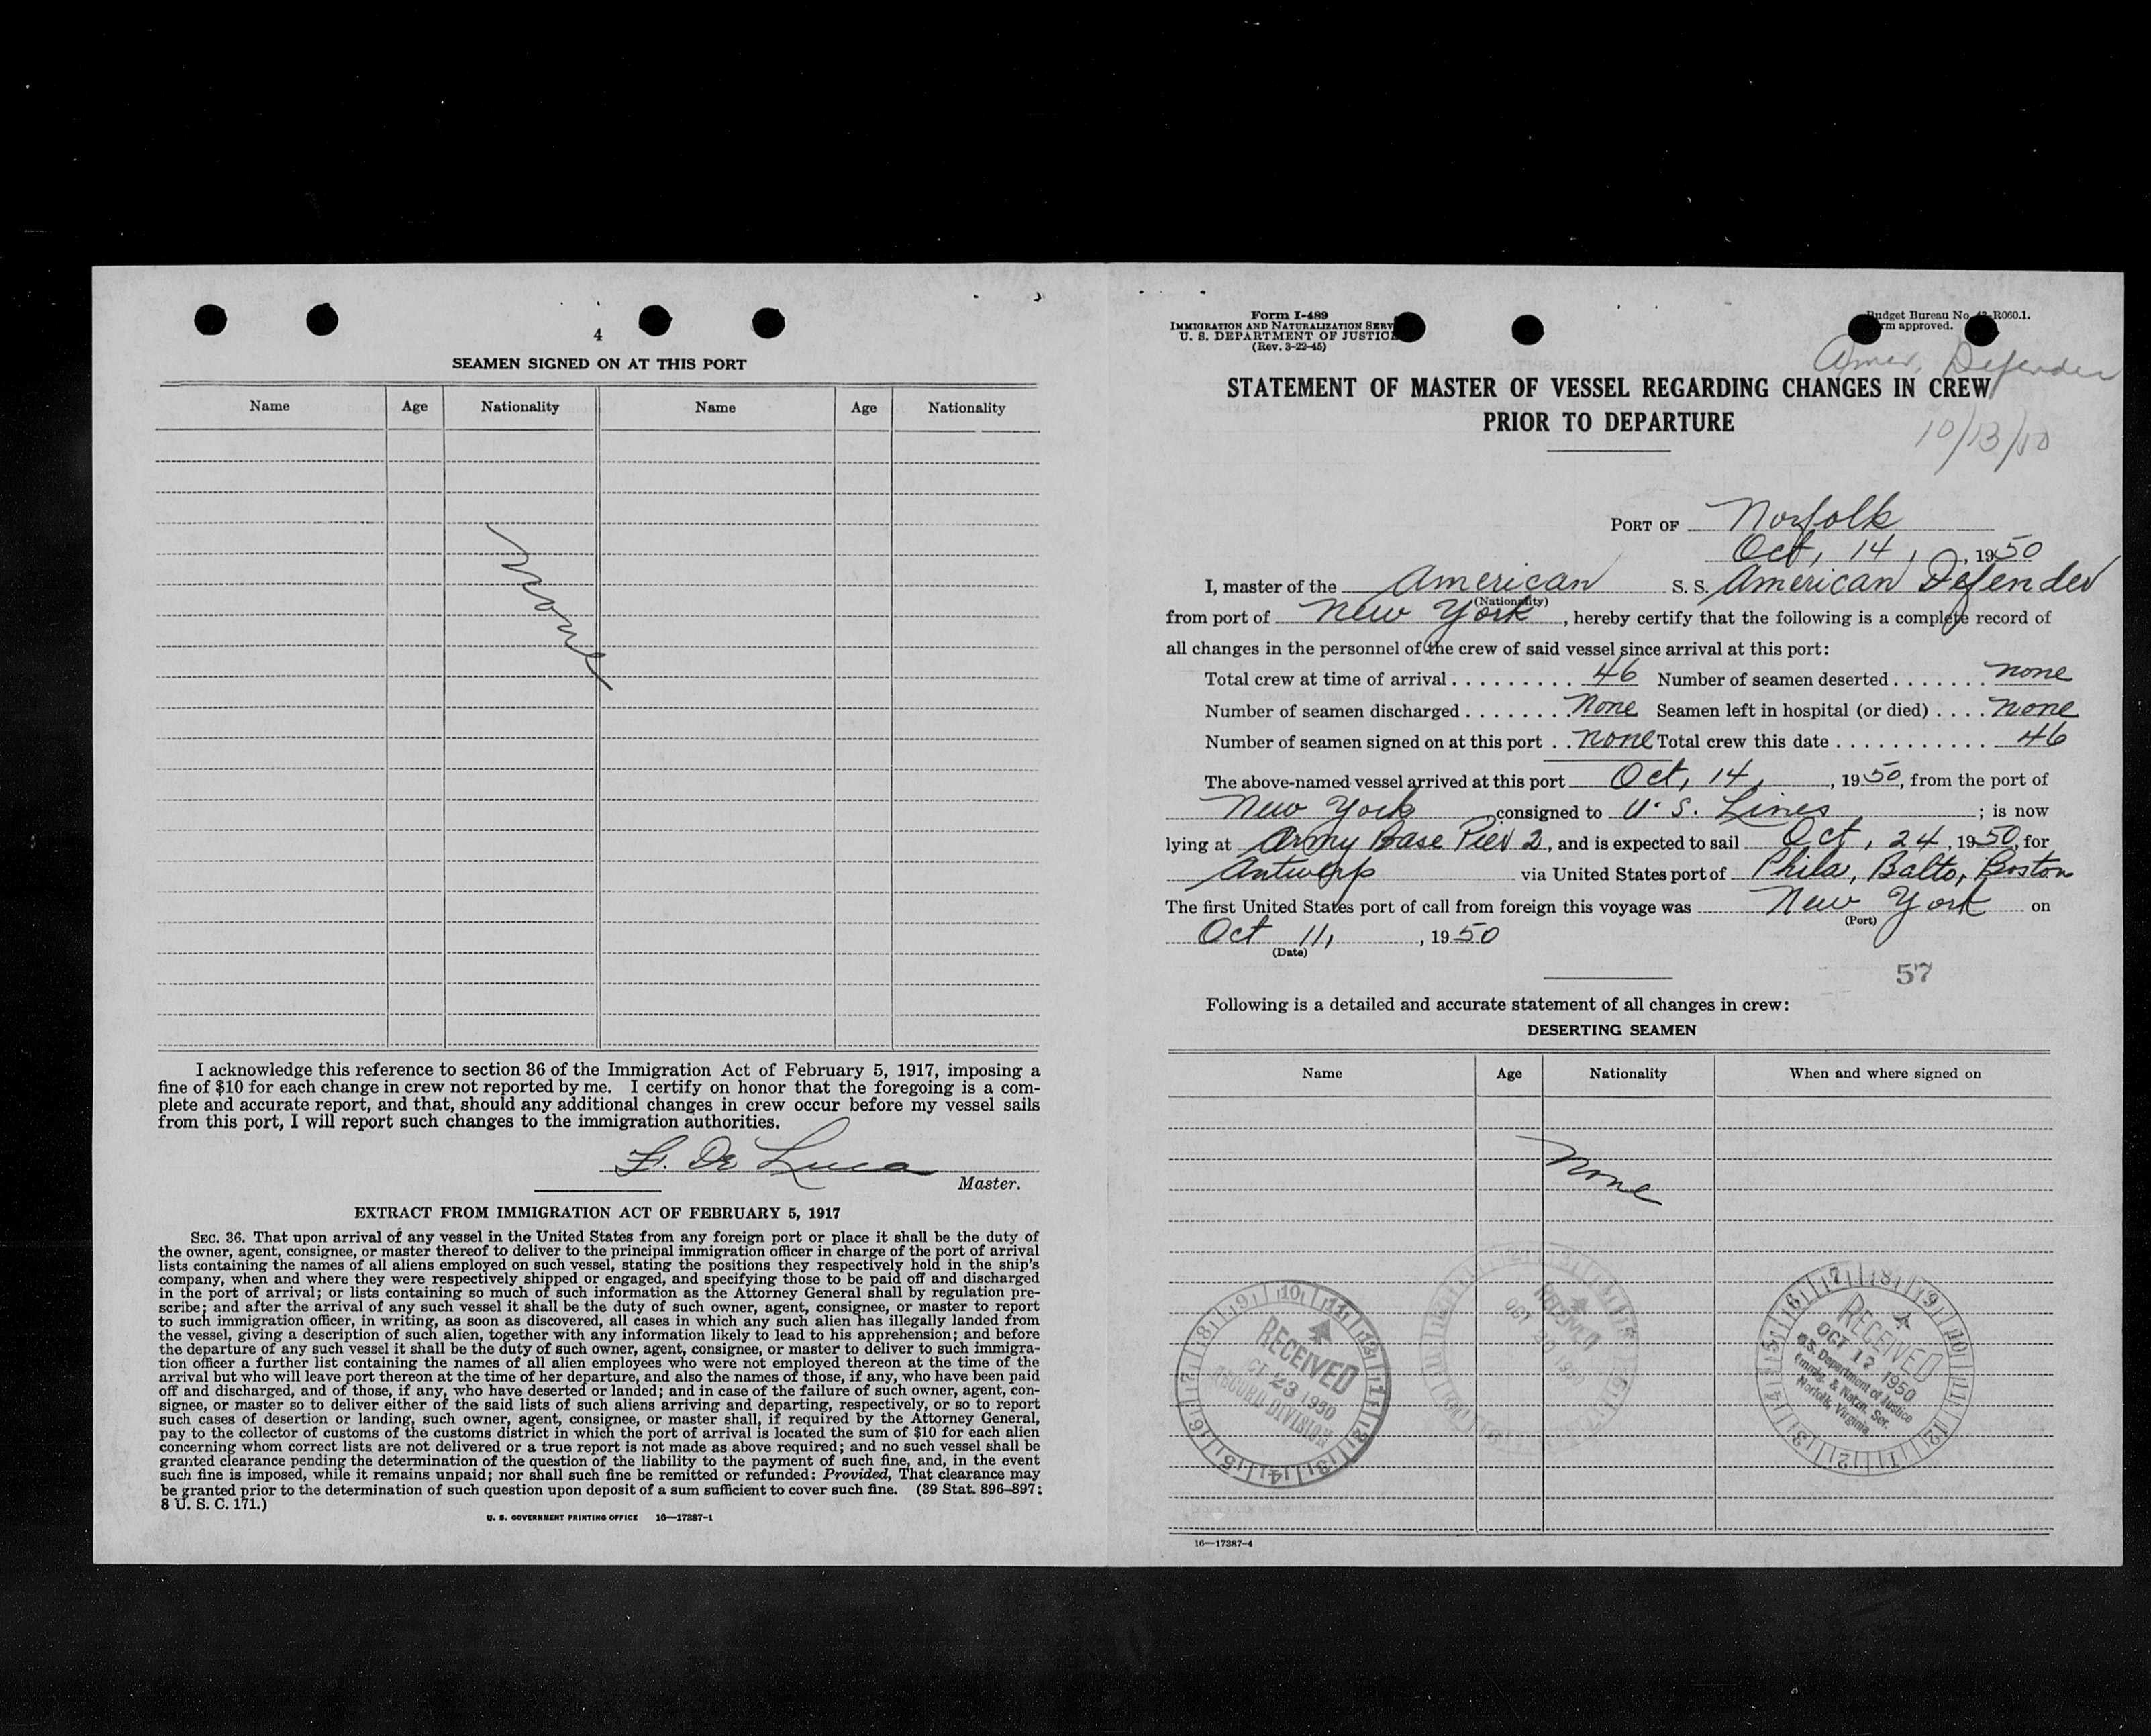 4
SEAMEN SIGNED ON AT THIS PORT
Name Age Nationality Name Age Nationality
None
I acknowledge this reference to section 36 of the Immigration Act of February 5, 1917, imposing a
fine of $10 for each change in crew not reported by me. I certify on honor that the foregoing is a com-
plete and accurate report, and that, should any additional changes in crew occur before my vessel sails
from this port, I will report such changes to the immigration authorities.
F. De Luca
Master.
EXTRACT FROM IMMIGRATION ACT OF FEBRUARY 5, 1917
SEC. 36. That upon arrival of any vessel in the United States from any foreign port or place it shall be the duty of
the owner, agent, consignee, or master thereof to deliver to the principal immigration officer in charge of the port of arrival
lists containing the names of all aliens employed on such vessel, stating the positions they respectively hold in the ship's
company, when and where they were respectively shipped or engaged, and specifying those to be paid off and discharged
in the port of arrival; or lists containing so much of such information as the Attorney General shall by regulation pre-
scribe; and after the arrival of any such vessel it shall be the duty of such owner, agent, consignee, or master to report
to such immigration officer, in writing, as soon as discovered, all cases in which any such alien has illegally landed from
the vessel, giving a description of such alien, together with any information likely to lead to his apprehension; and before
the departure of any such vessel it shall be the duty of such owner, agent, consignee, or master to deliver to such immigra-
tion officer a further list containing the names of all alien employees who were not employed thereon at the time of the
arrival but who will leave port thereon at the time of her departure, and also the names of those, if any, who have been paid
off and discharged, and of those, if any, who have deserted or landed; and in case of the failure of such owner, agent, con-
signee, or master so to deliver either of the said lists of such aliens arriving and departing, respectively, or so to report
such cases of desertion or landing, such owner, agent, consignee, or master shall, if required by the Attorney General,
pay to the collector of customs of the customs district in which the port of arrival is located the sum of $10 for each alien
concerning whom correct lists are not delivered or a true report is not made as above required; and no such vessel shall be
granted clearance pending the determination of the question of the liability to the payment of such fine, and, in the event
such fine is imposed, while it remains unpaid; nor shall such fine be remitted or refunded: Provided, That clearance may
be granted prior to the determination of such question upon deposit of a sum sufficient to cover such fine. (39 Stat. 896–897;
8 U. S. C. 171.)
U. S. GOVERNMENT PRINTING OFFICE 16—17387-1
Form I-489
IMMIGRATION AND NATURALIZATION SERV
U. S. DEPARTMENT OF JUSTICE
(Rev. 3-22-45)
Budget Bureau No. R060.1.
approved.
Amer. Defender
STATEMENT OF MASTER OF VESSEL REGARDING CHANGES IN CREW
PRIOR TO DEPARTURE
10/13/50
PORT OF Norfolk
Oct, 14, , 1950
I, master of the American S. S. American Defender
(Nationality)
from port of New York, hereby certify that the following is a complete record of
all changes in the personnel of the crew of said vessel since arrival at this port:
Total crew at time of arrival 46 Number of seamen deserted none
Number of seamen discharged None Seamen left in hospital (or died) none
Number of seamen signed on at this port none Total crew this date 46
The above-named vessel arrived at this port Oct, 14, , 1950, from the port of
New York consigned to U.S. Lines ; is now
lying at Army Base Pier 2, and is expected to sail Oct, 24, 1950, for
Antwerp via United States port of Phila, Balto, Boston
The first United States port of call from foreign this voyage was New York on
(Port)
Oct 11, , 1950
(Date)
57
Following is a detailed and accurate statement of all changes in crew:
DESERTING SEAMEN
Name Age Nationality When and where signed on
None
RECEIVED
23 1950
RECORD DIVISION
RECEIVED
OCT 1950
RECEIVED
OCT 17 1950
U.S. Department of Justice
Immig. & Natzn. Ser.
Norfolk, Virginia
16—17387-4